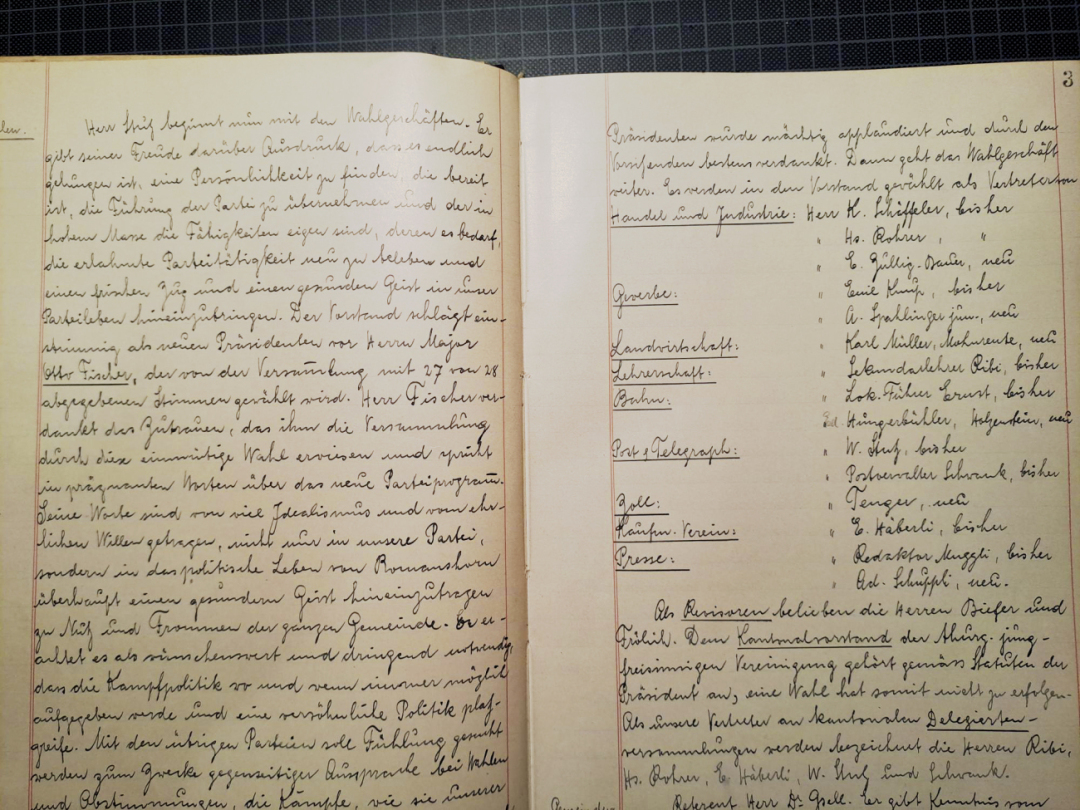 len.
Herr Stutz beginnt nun mit den Wahlgeschäften. Er
gibt seiner Freude darüber Ausdruck, dass es endlich
gelungen ist, eine Persönlichkeit zu finden, die bereit
ist, die Führung der Partei zu übernehmen und der in
hohem Masse die Fähigkeiten eigen sind, deren es bedarf,
die erlahmte Parteitätigkeit neu zu beleben und
einen frischen Zug und einen gesunden Geist in unser
Parteileben hineinzubringen. Der Vorstand schlägt ein-
stimmig als neuen Präsidenten vor Herrn Major
Otto Fischer, der von der Versam̅lung mit 27 von 28
abgegebenen Stimmen gewählt wird. Herr Fischer ver-
dankt das Zutrauen, das ihm die Versammlung
durch diese einmütige Wahl erwiesen und spricht
in prägnanten Worten über das neue Parteiprogram̅.
Seine Worte sind von viel Idealismus und vom ehr-
lichen Willen getragen, nicht nur in unsere Partei,
sondern in das politische Leben von Romanshorn
überhaupt einen gesundern Geist hineinzutragen
zu Nutz und Frommen der ganzen Gemeinde. Er er-
achtet es als wünschenswert und dringend notwendig,
dass die Kampfpolitik wo und wenn immer möglich
aufgegeben werde und eine versöhnliche Politik platz-
greife. Mit den übrigen Parteien soll Fühlung gesucht
werden zum Zwecke gegenseitiger Aussprache bei Wahlen
und Abstimmungen, die Kämpfe, wie sie unserer
3
Präsidenten wurde mächtig applaudiert und durch den
Vorsitzenden bestens verdankt. Dann geht das Wahlgeschäft
weiter. Es werden in den Vorstand gewählt als Vertreter von
Handel und Industrie: Herr K. Schäffeler, bisher
" Hs. Rohrer, "
" E. Züllig-Bauer, neu
Gewerbe: " Emil Knup, bisher
" A. Spahlinger jun., neu
Landwirtschaft: " Karl Müller, neu
Lehrerschaft: " Sekundarlehrer Ribi, bisher
Bahn: " Lok. Führer Ernst, bisher
Ed. Hungerbühler, Holzenstein, neu
" W. Stutz, bisher
Post & Telegraph: " Postverwalter Schwank, bisher
Zoll: " Tenger, neu
Kaufm. Verein: " E. Häberli, bisher
Presse: " Redaktor Muggli, bisher
" Ad. Schüppli, neu.
Als Revisoren belieben die Herren Biefer und
Frölich. Dem Kantonalvorstand der thurg. jung-
freisinnigen Vereinigung gehört gemäss Statuten der
Präsident an, eine Wahl hat somit nicht zu erfolgen.
Als unsere Vertreter an kantonalen Delegierten-
versammlungen werden bezeichnet die Herren Ribi,
Hs. Rohrer, E. Häberli, W. Stutz und Schwank.
Referent Herr Dr. Gsell. Er gibt Kenntnis vom